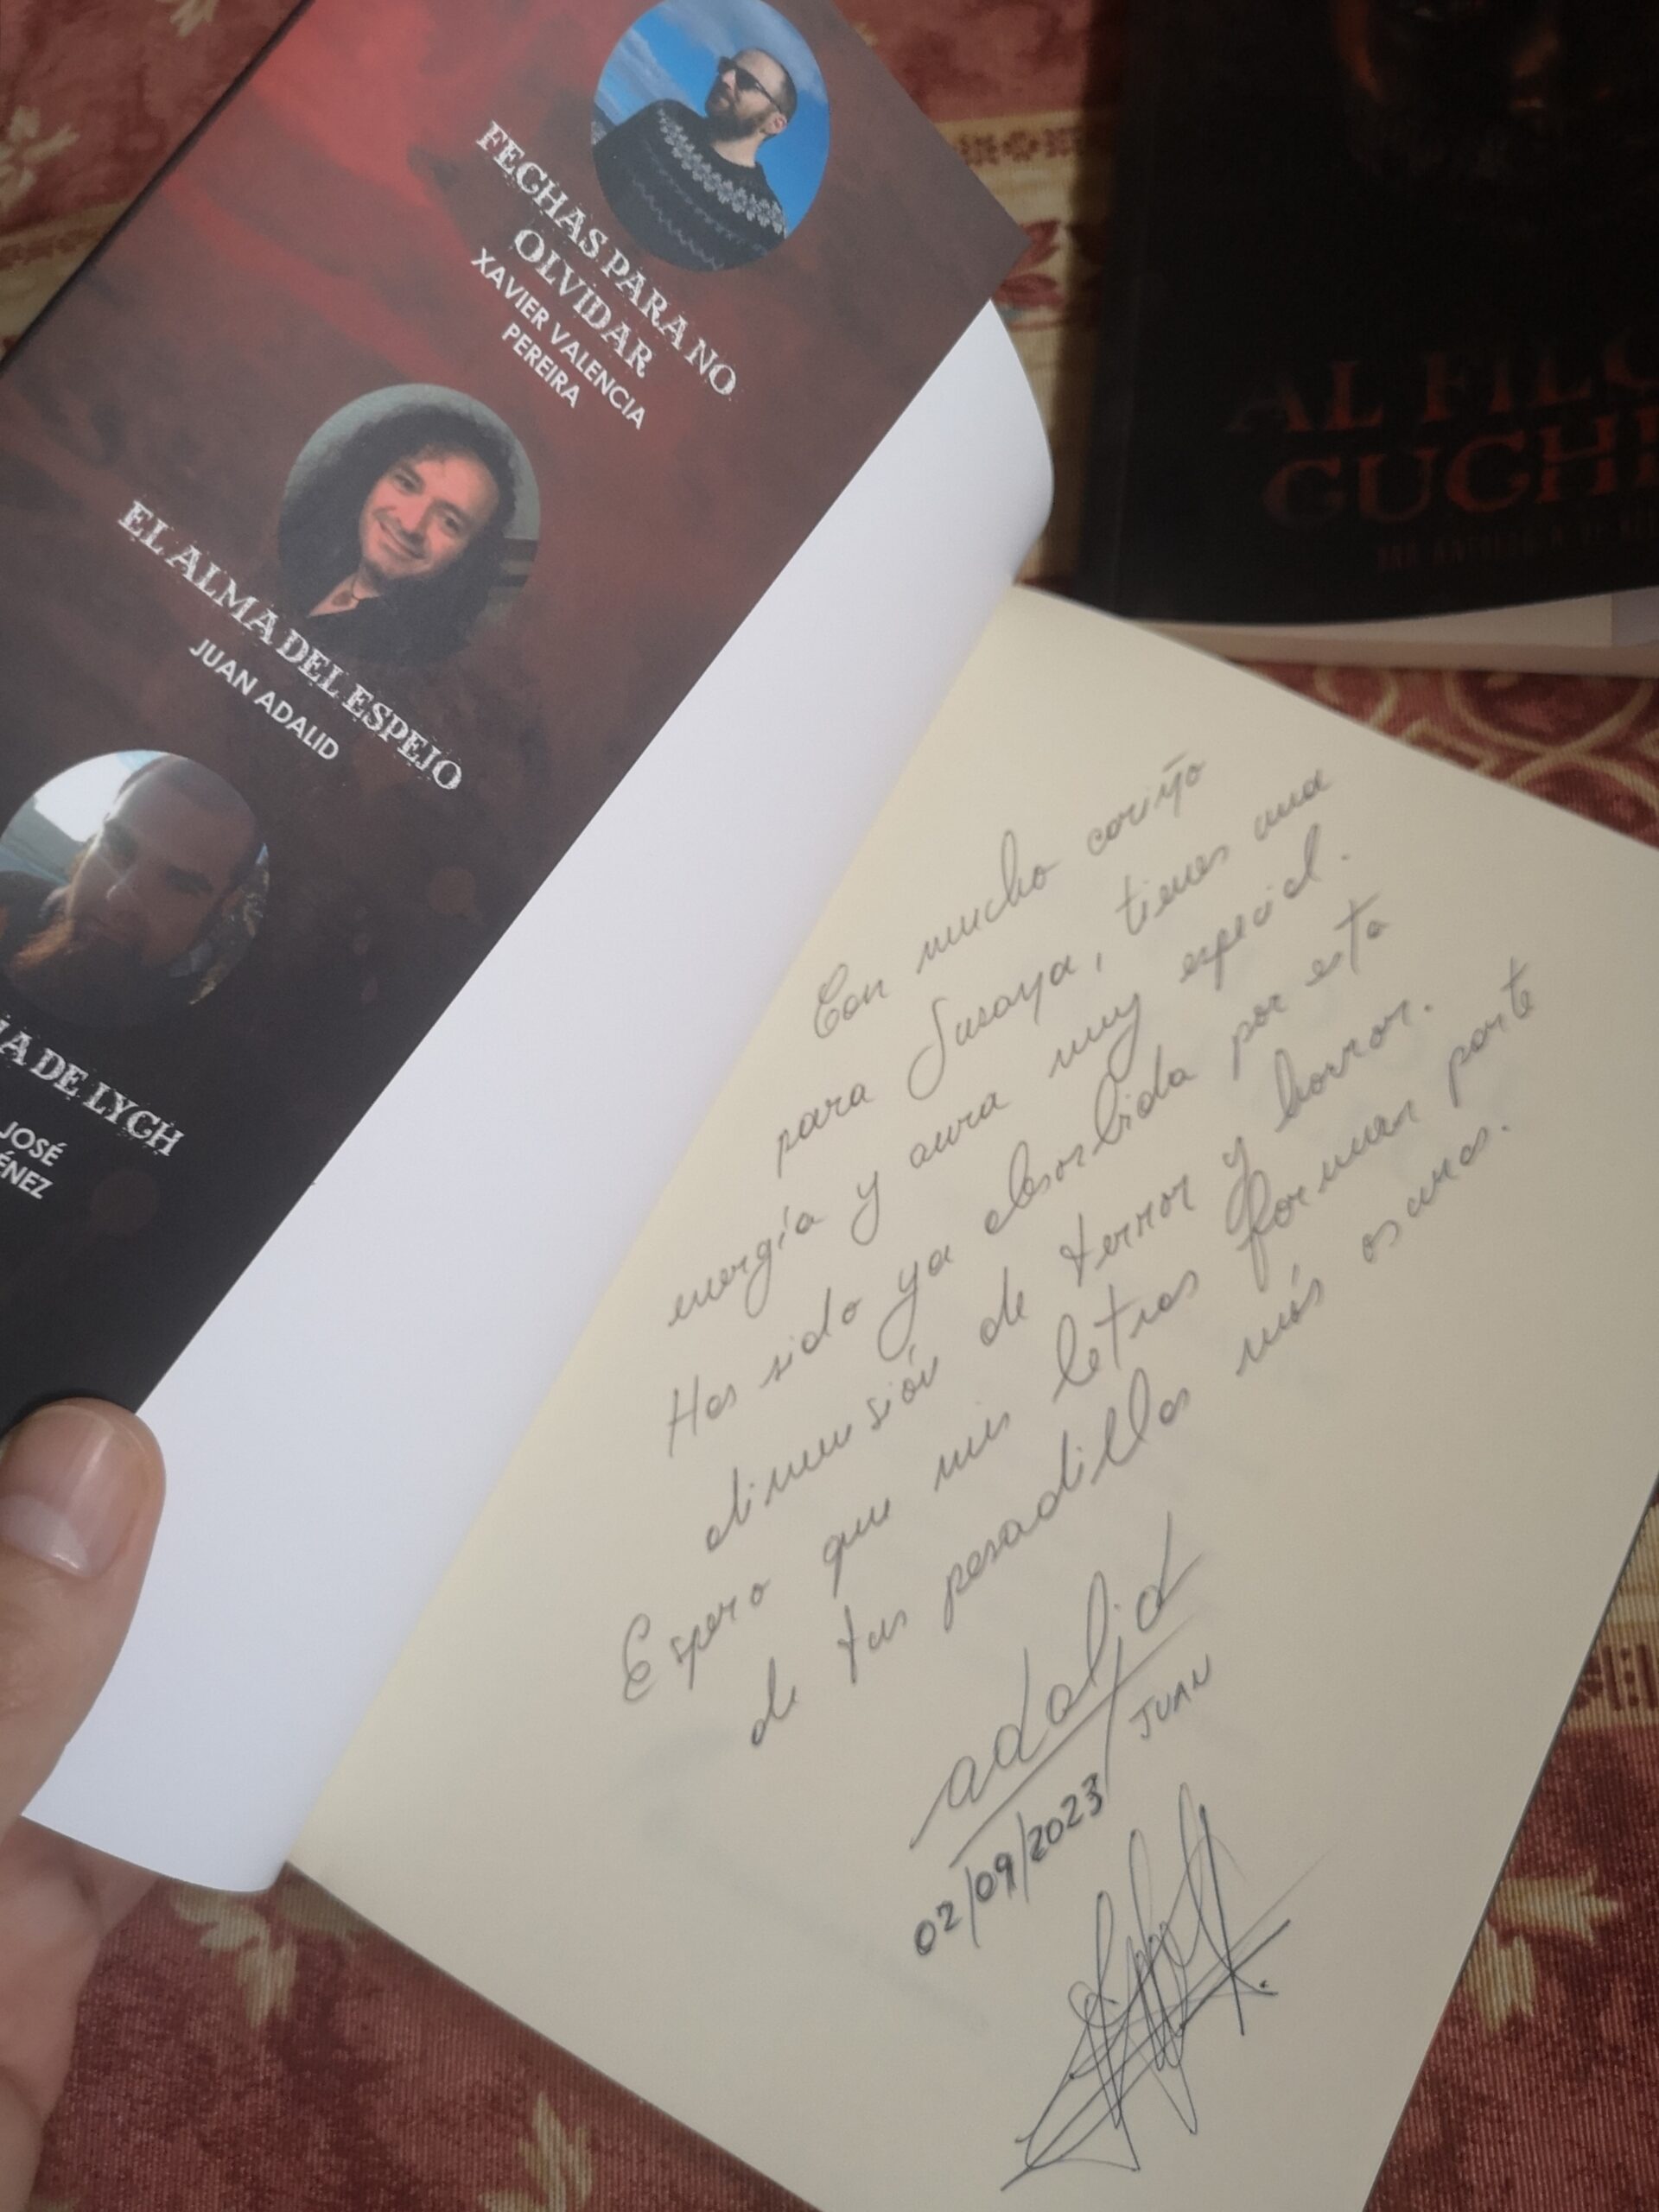 FECHAS PARA NO
OLVIDAR
XAVIER VALENCIA
PEREIRA
EL ALMA DEL ESPEJO
JUAN ADALID
A DE LYCH
JOSÉ
ÉNEZ
AL FILO
CUCHI
Con mucho cariño
para Susaya, tienes una
energía y aura muy especial.
Has sido ya absorbida por esta
dimensión de terror y horror.
Espero que mis letras forman parte
de tus pesadillas más oscuras.
adalid
JUAN
02/09/2023